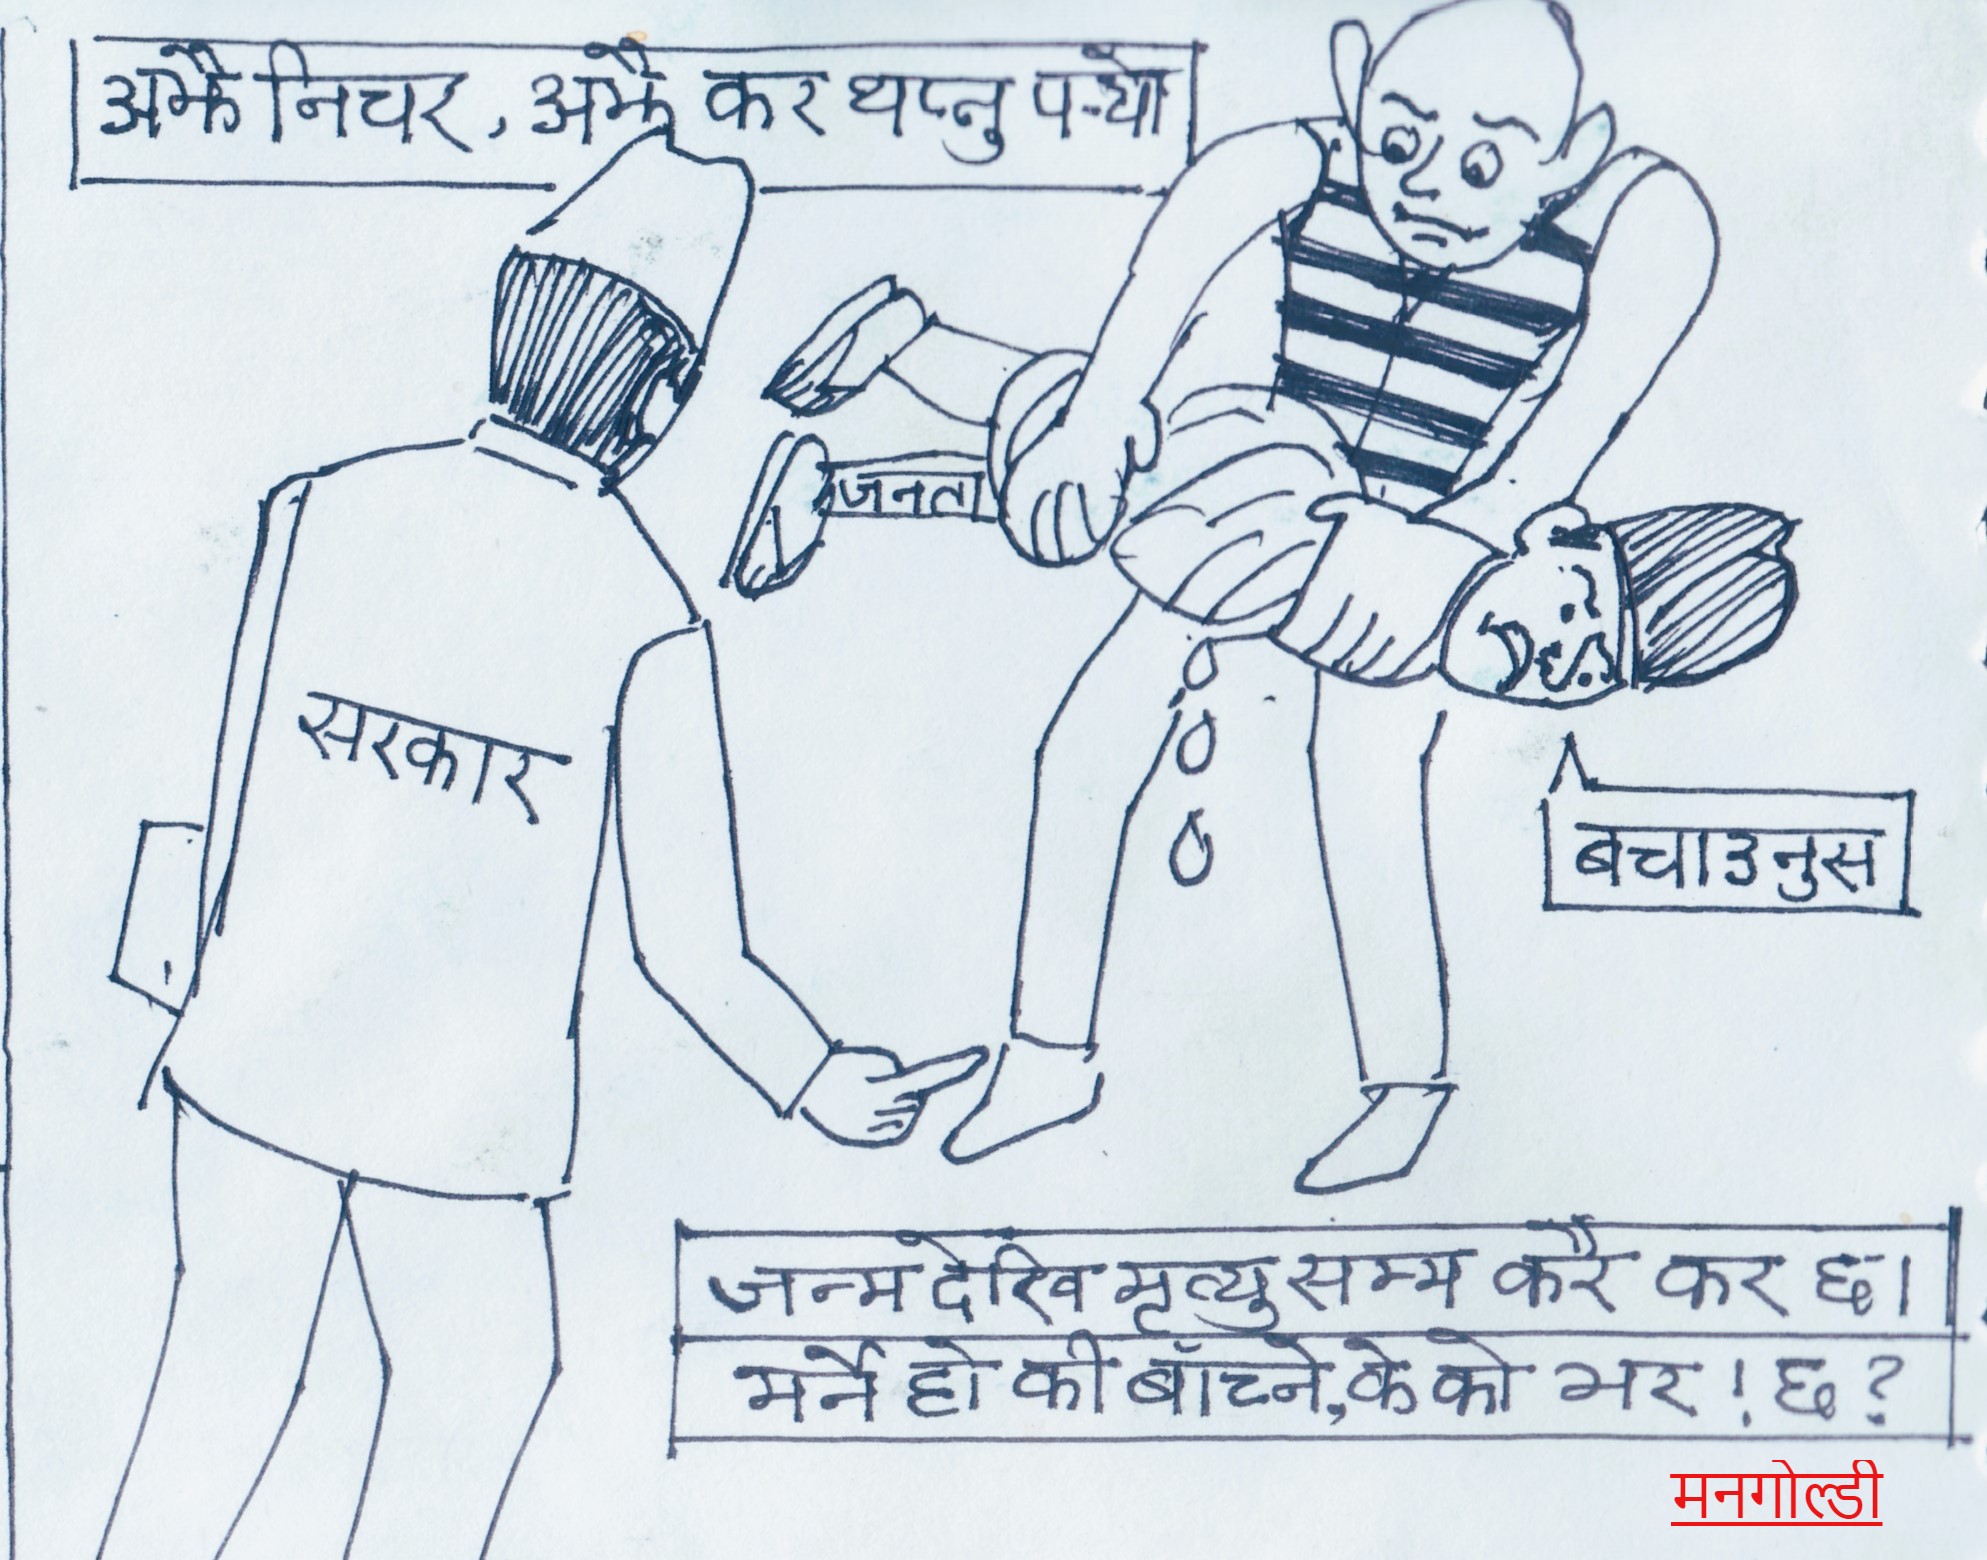 अझै निचर, अझै कर थप्नु पर्‍यो
जनता
सरकार
बचाउनुस
जन्म देखि मृत्यु सम्म करै कर छ।
मर्ने हो की बाँच्ने, के को भर ! छ ?
मनगोल्डी